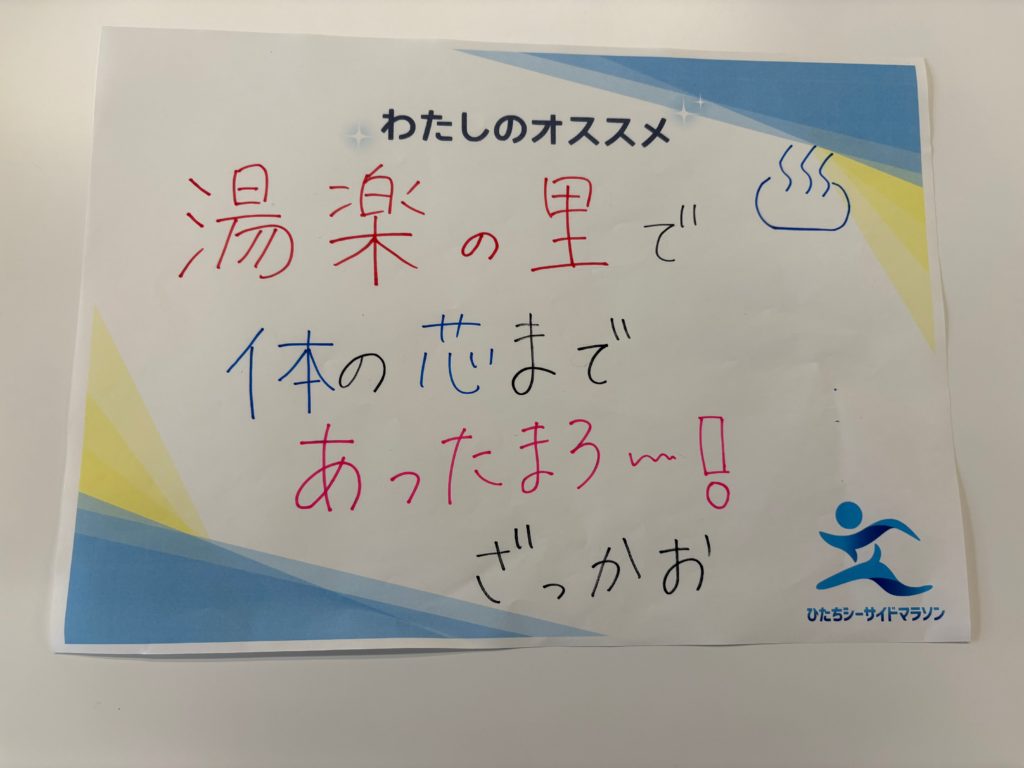 わたしのオススメ
湯楽の里で
体の芯まで
あったまろ〜!
ざっかお
ひたちシーサイドマラソン